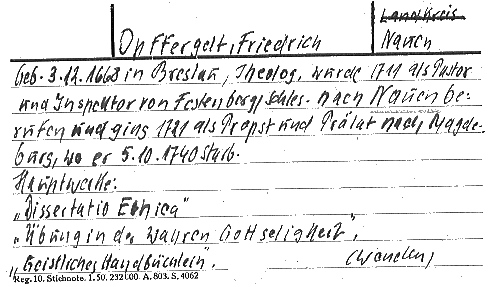 Landkreis
Opffergelt, Friedrich
Nauen
Geb. 3.12.1668 in Breslau, Theolog, wurde 1711 als Pastor
und Inspektor von Festenberg/Schles. nach Nauen be-
rufen und ging 1721 als Propst und Prälat nach Magde-
burg, wo er 5.10.1740 starb.
Hauptwerke:
„Dissertatio Ethica"
„Übung in der wahren Gottseligkeit",
„Geistliches Handbüchlein.
Reg. 10. Stichnote. 1. 50. 232 00. A. 803. S. 4062